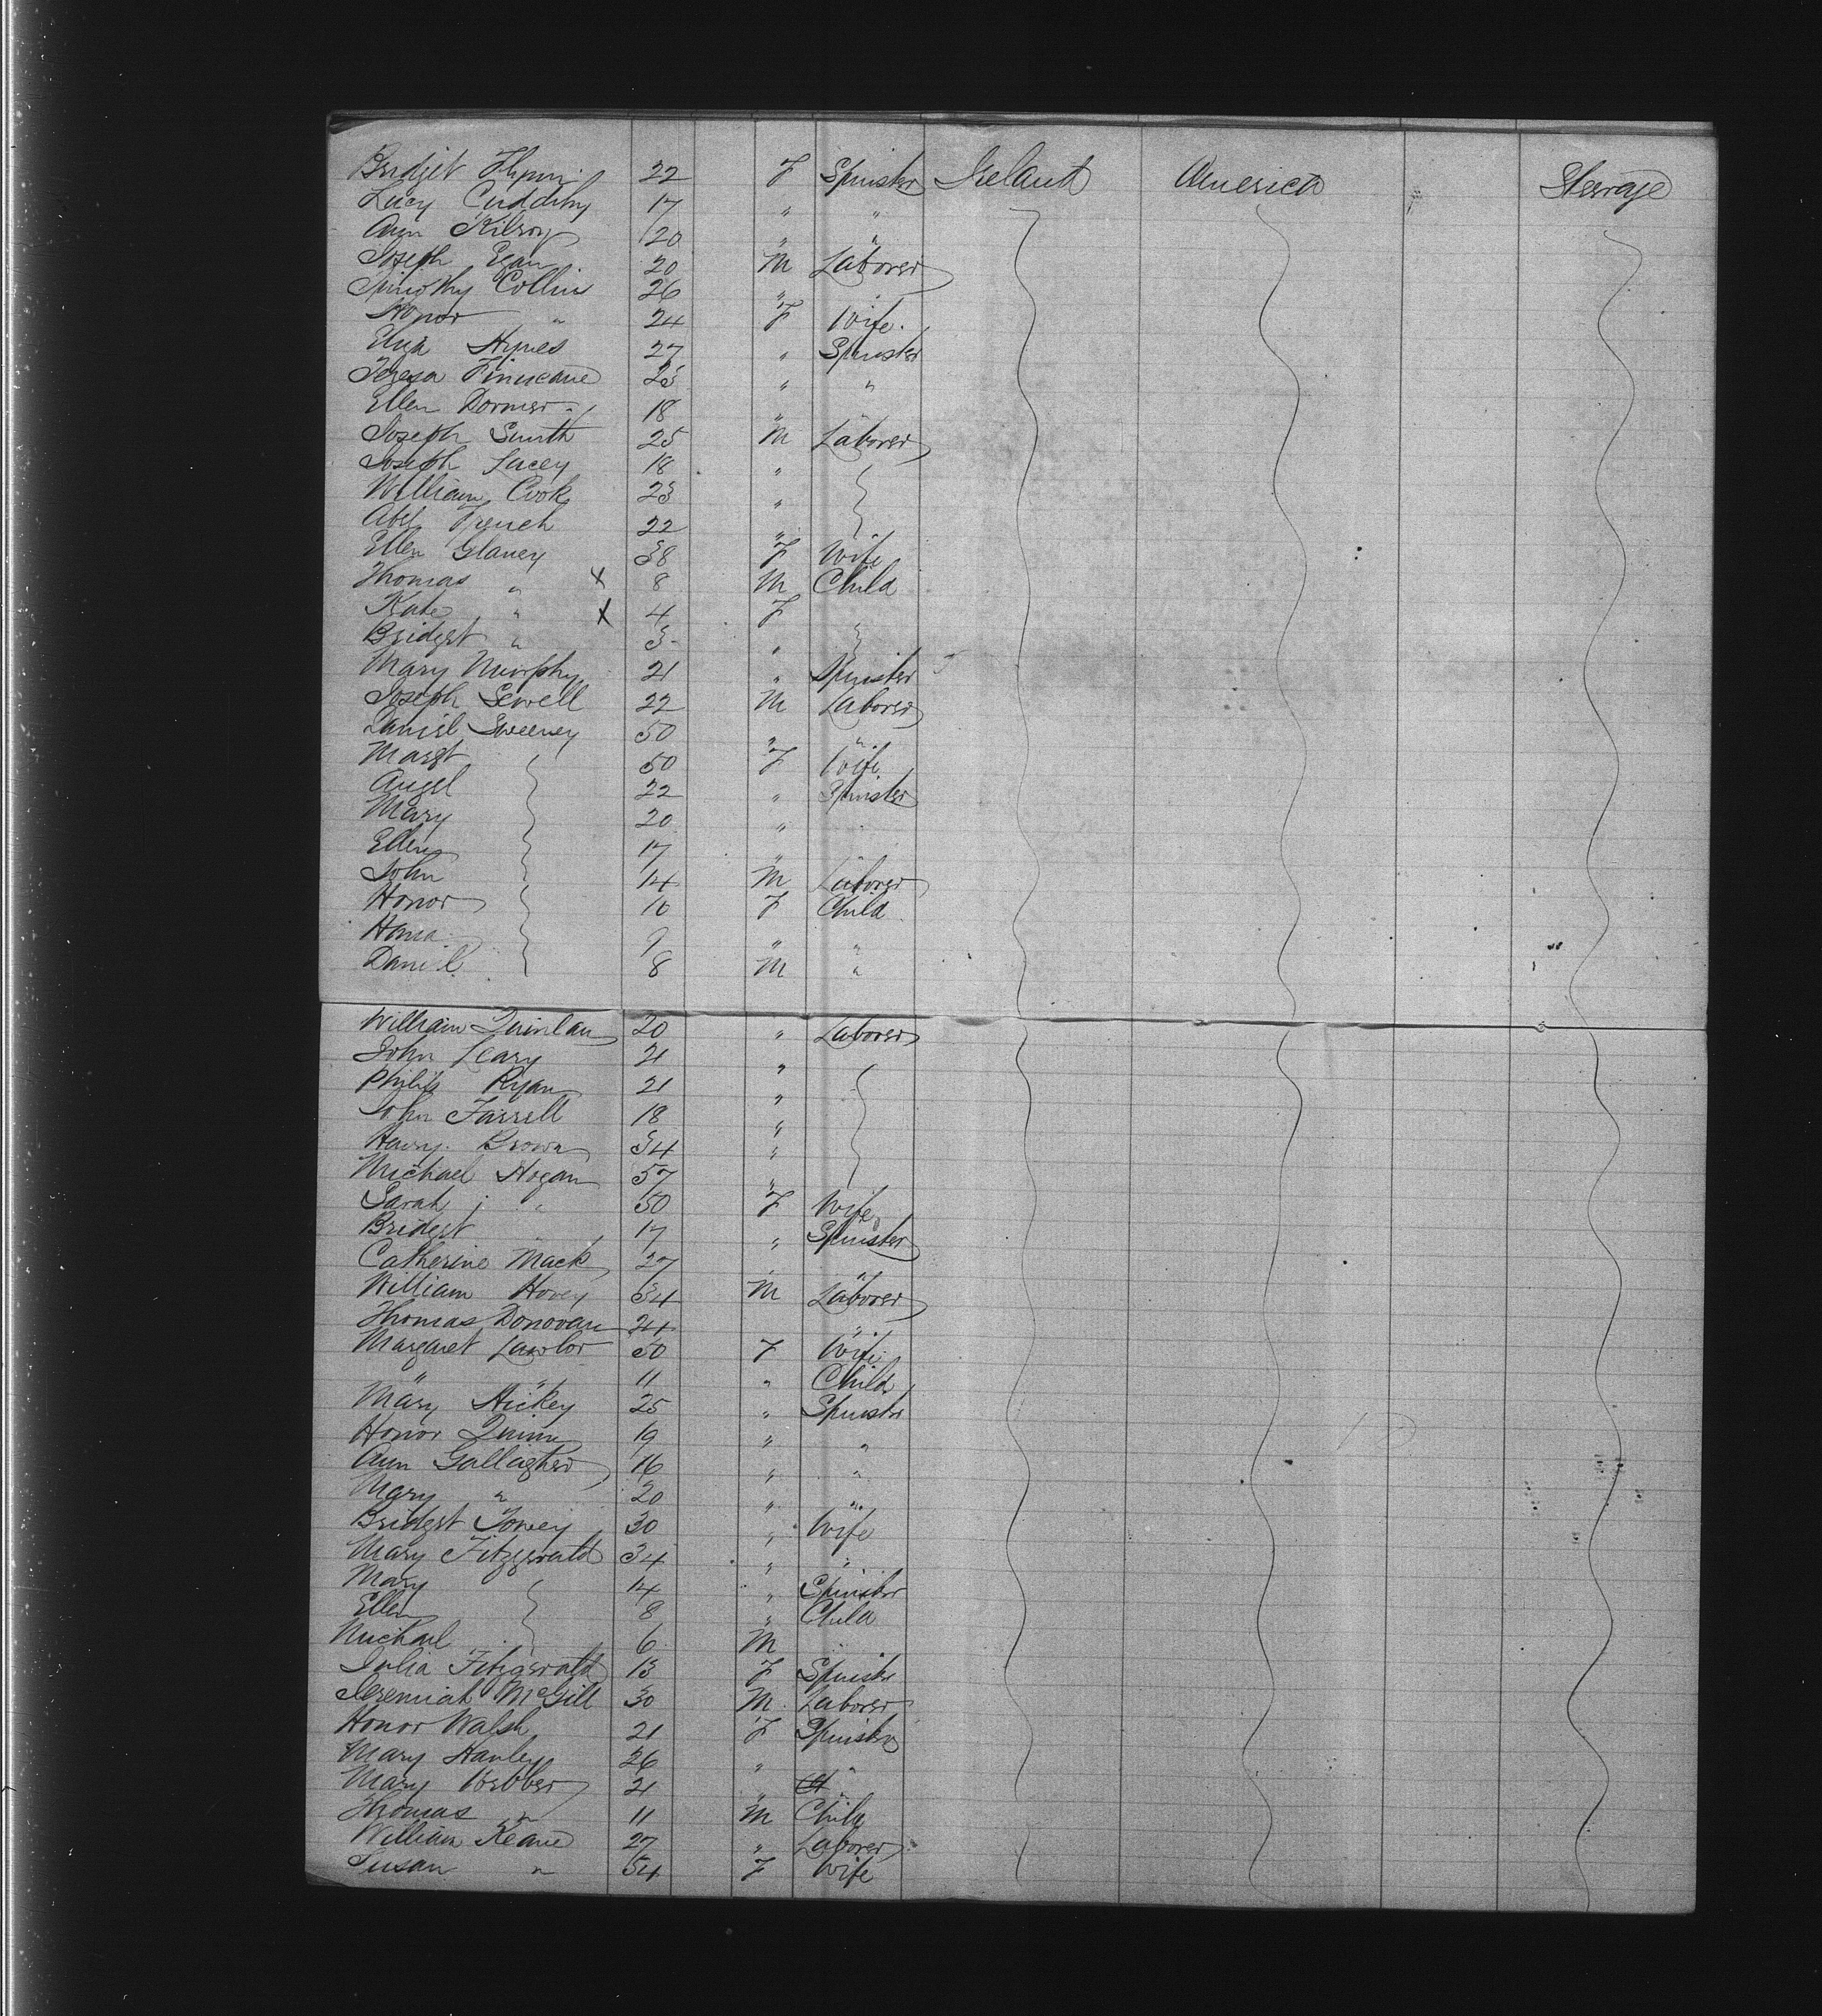 Bridget Flynn 22 F Spinster Ireland America Steerage
Lucy Cuddihy 17 " "
Ann Kilroy 20 " "
Joseph Egan 20 M Laborer
Timothy Collins 26 " "
Honor " 24 F Wife
Eliza Hynes 27 " Spinster
Teresa Finucane 23 " "
Ellen Dormer 18 " "
Joseph Smith 25 M Laborer
Joseph Lacey 18 "
William Cook 23 "
Abel French 22 "
Ellen Glancy 38 F Wife
Thomas " X 8 M Child
Kate " X 4 F "
Bridget " 3 "
Mary Murphy 21 " Spinster
Joseph Sewell 22 M Laborer
Daniel Sweeney 50 " "
Margt 50 F Wife
Angel 22 " Spinster
Mary 20 "
Ellen 17 " "
John 14 M Laborer
Honor 10 F Child
9 " "
Daniel 8 M "
William Quinlan 20 " Laborer
John Leary 21 "
Philip Ryan 21 "
John Farrell 18 "
Henry Brown 34 "
Michael Hogan 57 "
Sarah " 50 F Wife
Bridget 17 " Spinster
Catherine Mack 27 " "
William Hovey 34 M Laborer
Thomas Donovan 24 "
Margaret Lawlor 50 F Wife
" " 11 " Child
Mary Hickey 25 " Spinster
Honor Quinn 19 " "
Ann Gallagher 16 " "
Mary " 20 " "
Bridget Towey 30 " Wife
Mary Fitzgerald 34 " "
Mary 14 " Spinster
Ellen 8 " Child
Michael 6 M "
Julia Fitzgerald 13 F Spinster
Jeremiah McGill 30 M Laborer
Honor Walsh 21 F Spinster
Mary Hanley 26 " "
Mary Webber 21 "
Thomas " 11 M Child
William Keane 27 " Laborer
Susan " 54 F Wife